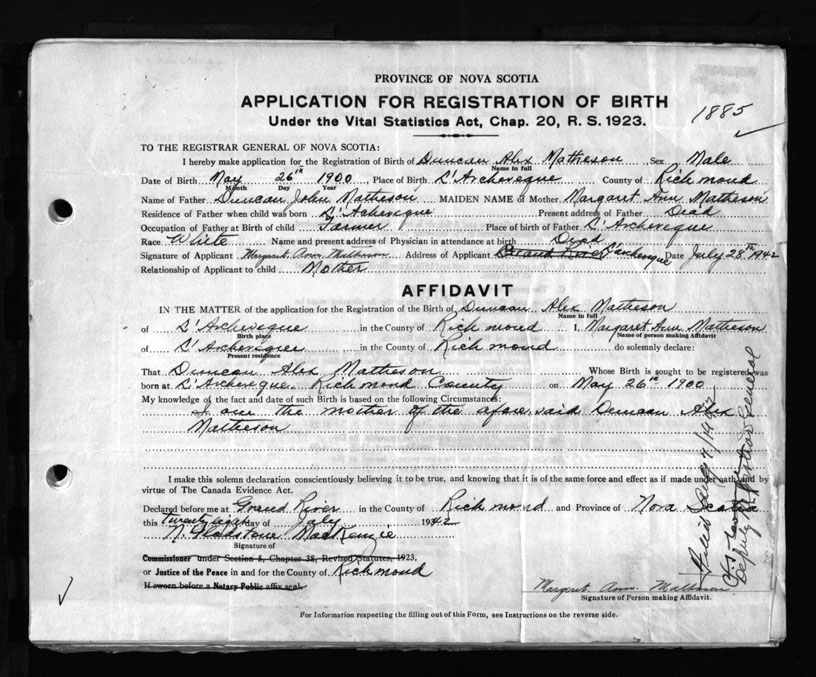 PROVINCE OF NOVA SCOTIA
APPLICATION FOR REGISTRATION OF BIRTH
1885
Under the Vital Statistics Act, Chap. 20, R. S. 1923.
TO THE REGISTRAR GENERAL OF NOVA SCOTIA:
I hereby make application for the Registration of Birth of Duncan Alex Matheson Sex Male
Name in full
Date of Birth May 26th 1900 Place of Birth L'Archeveque County of Richmond
Month Day Year
Name of Father Duncan John Matheson MAIDEN NAME of Mother Margaret Ann Matheson
Residence of Father when child was born L'Acheveque Present address of Father Dead
Occupation of Father at Birth of child Farmer Place of birth of Father L'Archeveque
Race White Name and present address of Physician in attendance at birth Dead
Signature of Applicant Margaret Ann Matheson Address of Applicant Grand River L'archeveque Date July 28th 1942
Relationship of Applicant to child Mother
AFFIDAVIT
IN THE MATTER of the application for the Registration of the Birth of Duncan Alex Matheson
Name in full
of L'Archeveque in the County of Richmond I, Margaret Ann Matheson
Birth place Name of person making Affidavit
of L'Archeveque in the County of Richmond do solemnly declare:
Present residence
That Duncan Alex Matheson Whose Birth is sought to be registered was
born at L'Archeveque, Richmond County on May 26th 1900
My knowledge of the fact and date of such Birth is based on the following Circumstances:
I am the mother of the afore said Duncan Alex
Matheson
I make this solemn declaration conscientiously believing it to be true, and knowing that it is of the same force and effect as if made under oath and by
virtue of The Canada Evidence Act.
Declared before me at Grand River in the County of Richmond and Province of Nova Scotia
this twenty eight day of July 1942
N. Gladstone MacKenzie
Signature of
Commissioner under Section 5, Chapter 38, Revised Statutes, 1923,
or Justice of the Peace in and for the County of Richmond
If sworn before a Notary Public affix seal.
Margaret Ann Matheson
Signature of Person making Affidavit.
For Information respecting the filling out of this Form, see Instructions on the reverse side.
Aug 4/1942
Deputy Registrar General